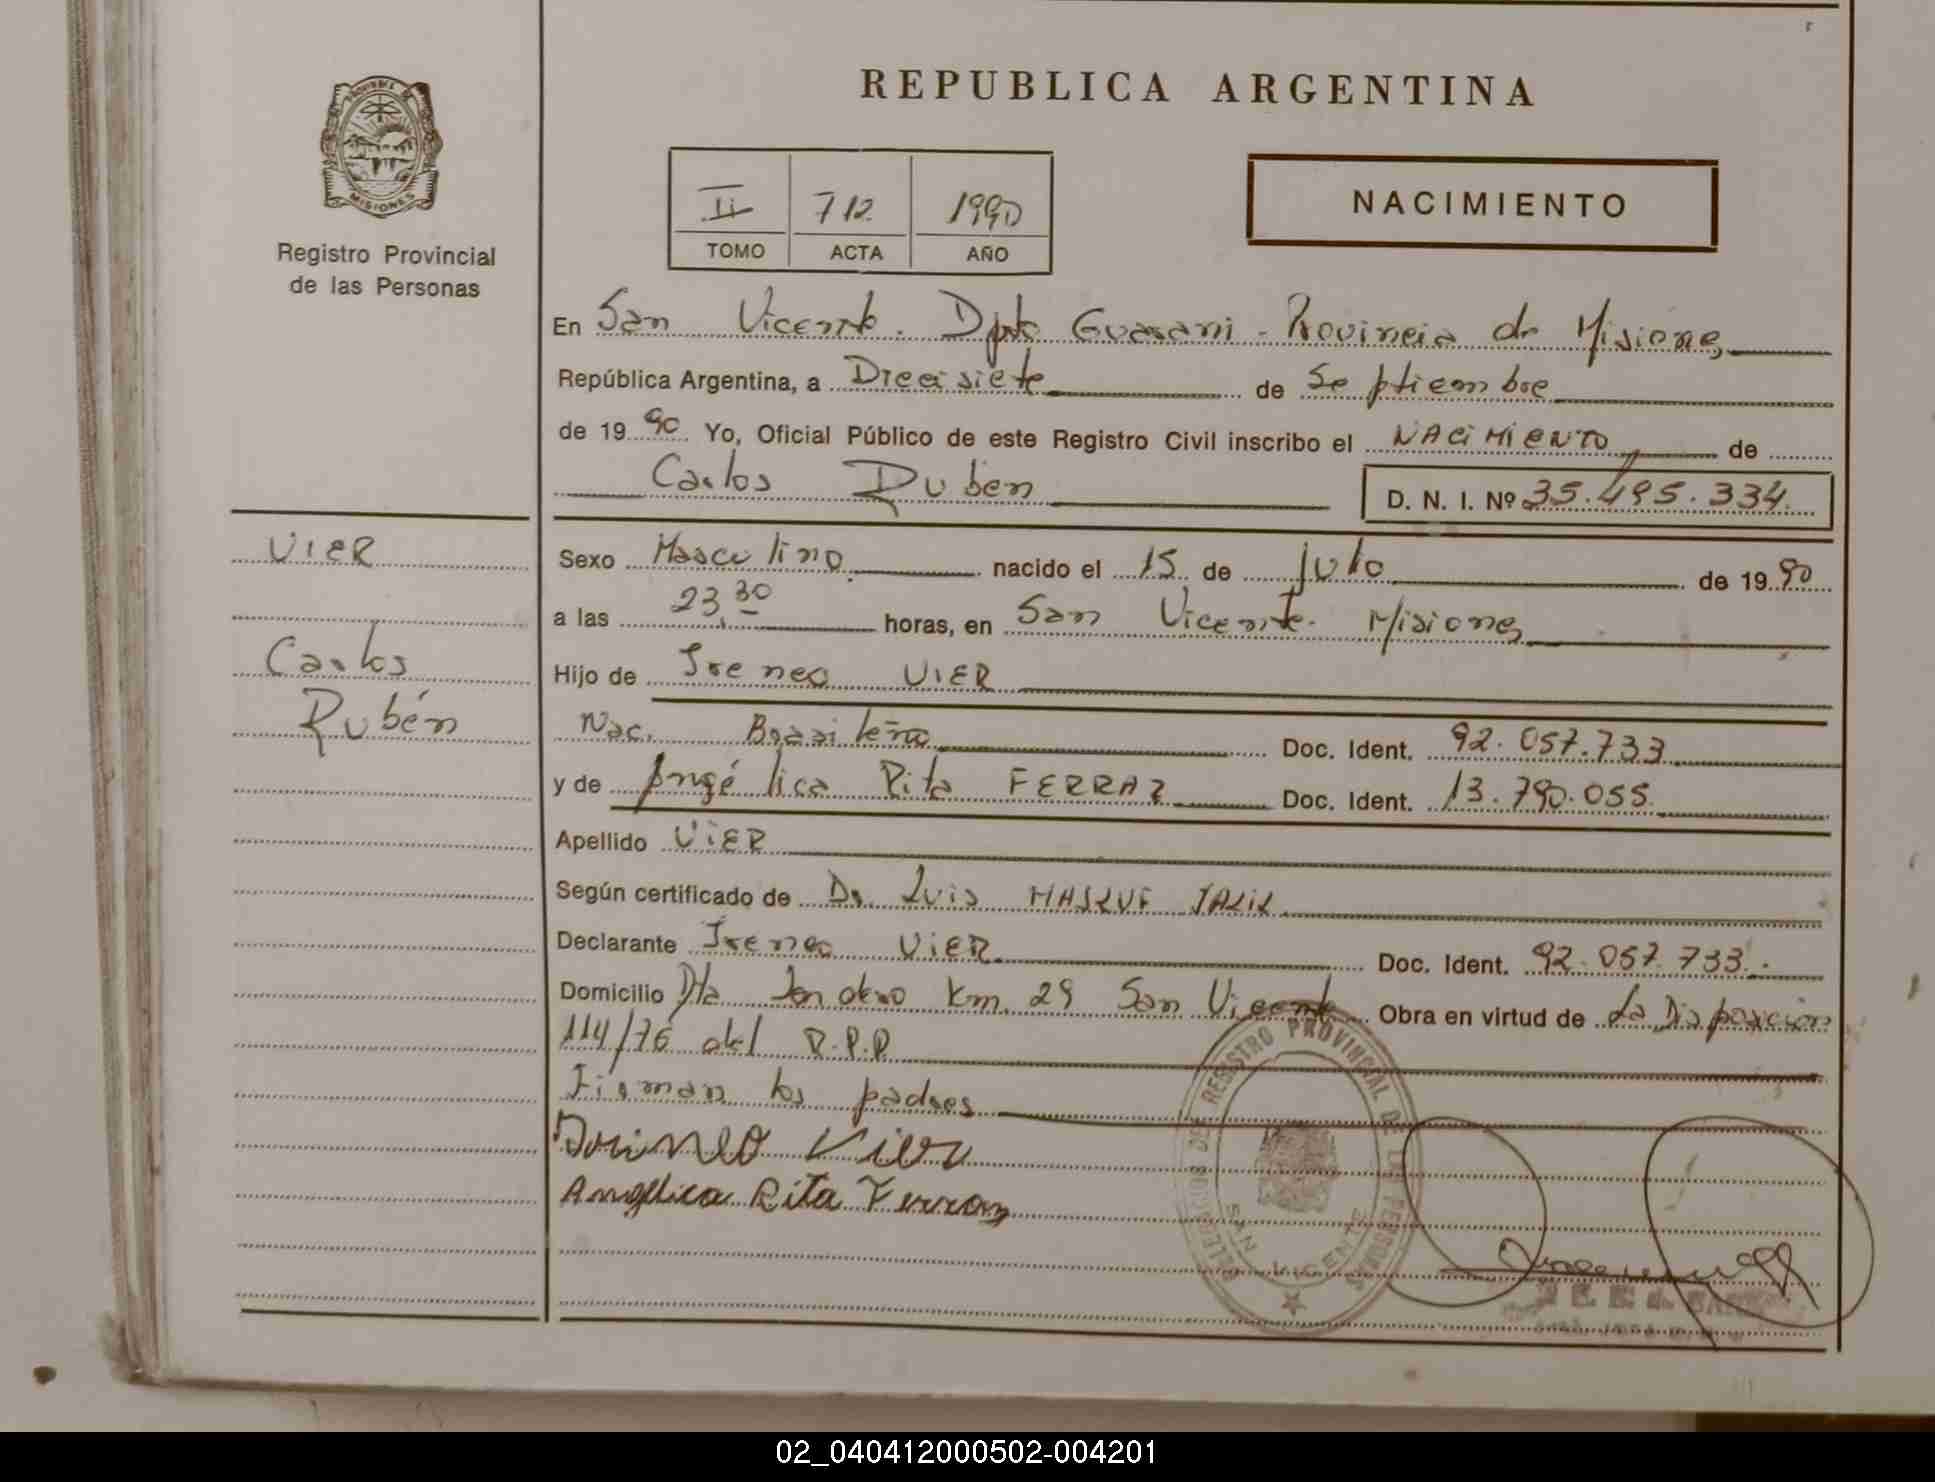 REPUBLICA ARGENTINA
PROVINCIA DE
MISIONES
Registro Provincial
de las Personas
II 712 1990
TOMO ACTA AÑO
NACIMIENTO
En San Vicente. Dpto Guarani - Provincia de Misiones
República Argentina, a Diecisiete de Septiembre
de 1990 Yo, Oficial Público de este Registro Civil inscribo el NACIMIENTO de
Carlos Ruben D. N. I. Nº 35.495.334
VIER
Carlos
Rubén
Sexo Masculino nacido el 15 de julio de 1990
a las 23,30 horas, en San Vicente. Misiones
Hijo de Ireneo VIER
Nac. Brasileña Doc. Ident. 92.057.733
y de Angélica Rita FERRAZ Doc. Ident. 13.790.055
Apellido VIER
Según certificado de Dr. Luis MASLUF JALIL
Declarante Ireneo VIER Doc. Ident. 92.057.733.
Domicilio Km. 29 San Vicente Obra en virtud de La Disposición
114/76 del R.P.P
Firman los padres
Dorineo Vier
Angelica Rita Ferraz
REGISTRO PROVINCIAL DE LAS PERSONAS
SAN VICENTE
02_040412000502-004201